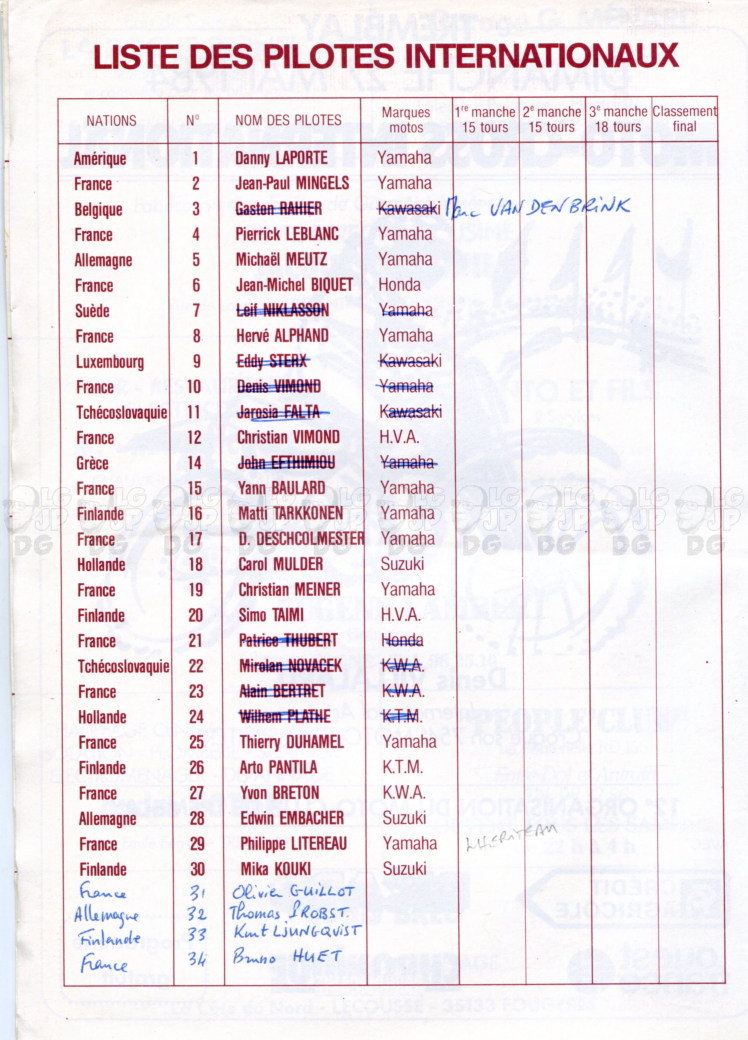 LISTE DES PILOTES INTERNATIONAUX
NATIONS N° NOM DES PILOTES Marques motos 1re manche 15 tours 2e manche 15 tours 3e manche 18 tours Classement final
Amérique 1 Danny LAPORTE Yamaha
France 2 Jean-Paul MINGELS Yamaha
Belgique 3 Gaston RAHIER Kawasaki Marc VAN DEN BRINK
France 4 Pierrick LEBLANC Yamaha
Allemagne 5 Michaël MEUTZ Yamaha
France 6 Jean-Michel BIQUET Honda
Suède 7 Leif NIKLASSON Yamaha
France 8 Hervé ALPHAND Yamaha
Luxembourg 9 Eddy STERX Kawasaki
France 10 Denis VIMOND Yamaha
Tchécoslovaquie 11 Jarosia FALTA Kawasaki
France 12 Christian VIMOND H.V.A.
Grèce 14 John EFTHIMIOU Yamaha
France 15 Yann BAULARD Yamaha
Finlande 16 Matti TARKKONEN Yamaha
France 17 D. DESCHCOLMESTER Yamaha
Hollande 18 Carol MULDER Suzuki
France 19 Christian MEINER Yamaha
Finlande 20 Simo TAIMI H.V.A.
France 21 Patrice THUBERT Honda
Tchécoslovaquie 22 Mirolan NOVACEK K.W.A.
France 23 Alain BERTRET K.W.A.
Hollande 24 Wilhem PLATHE K.T.M.
France 25 Thierry DUHAMEL Yamaha
Finlande 26 Arto PANTILA K.T.M.
France 27 Yvon BRETON K.W.A.
Allemagne 28 Edwin EMBACHER Suzuki
France 29 Philippe LITEREAU Yamaha
Finlande 30 Mika KOUKI Suzuki
France 31 Olivier GUILLOT
Allemagne 32 Thomas PROBST.
Finlande 33 Kurt LJUNGQVIST
France 34 Bruno HUET